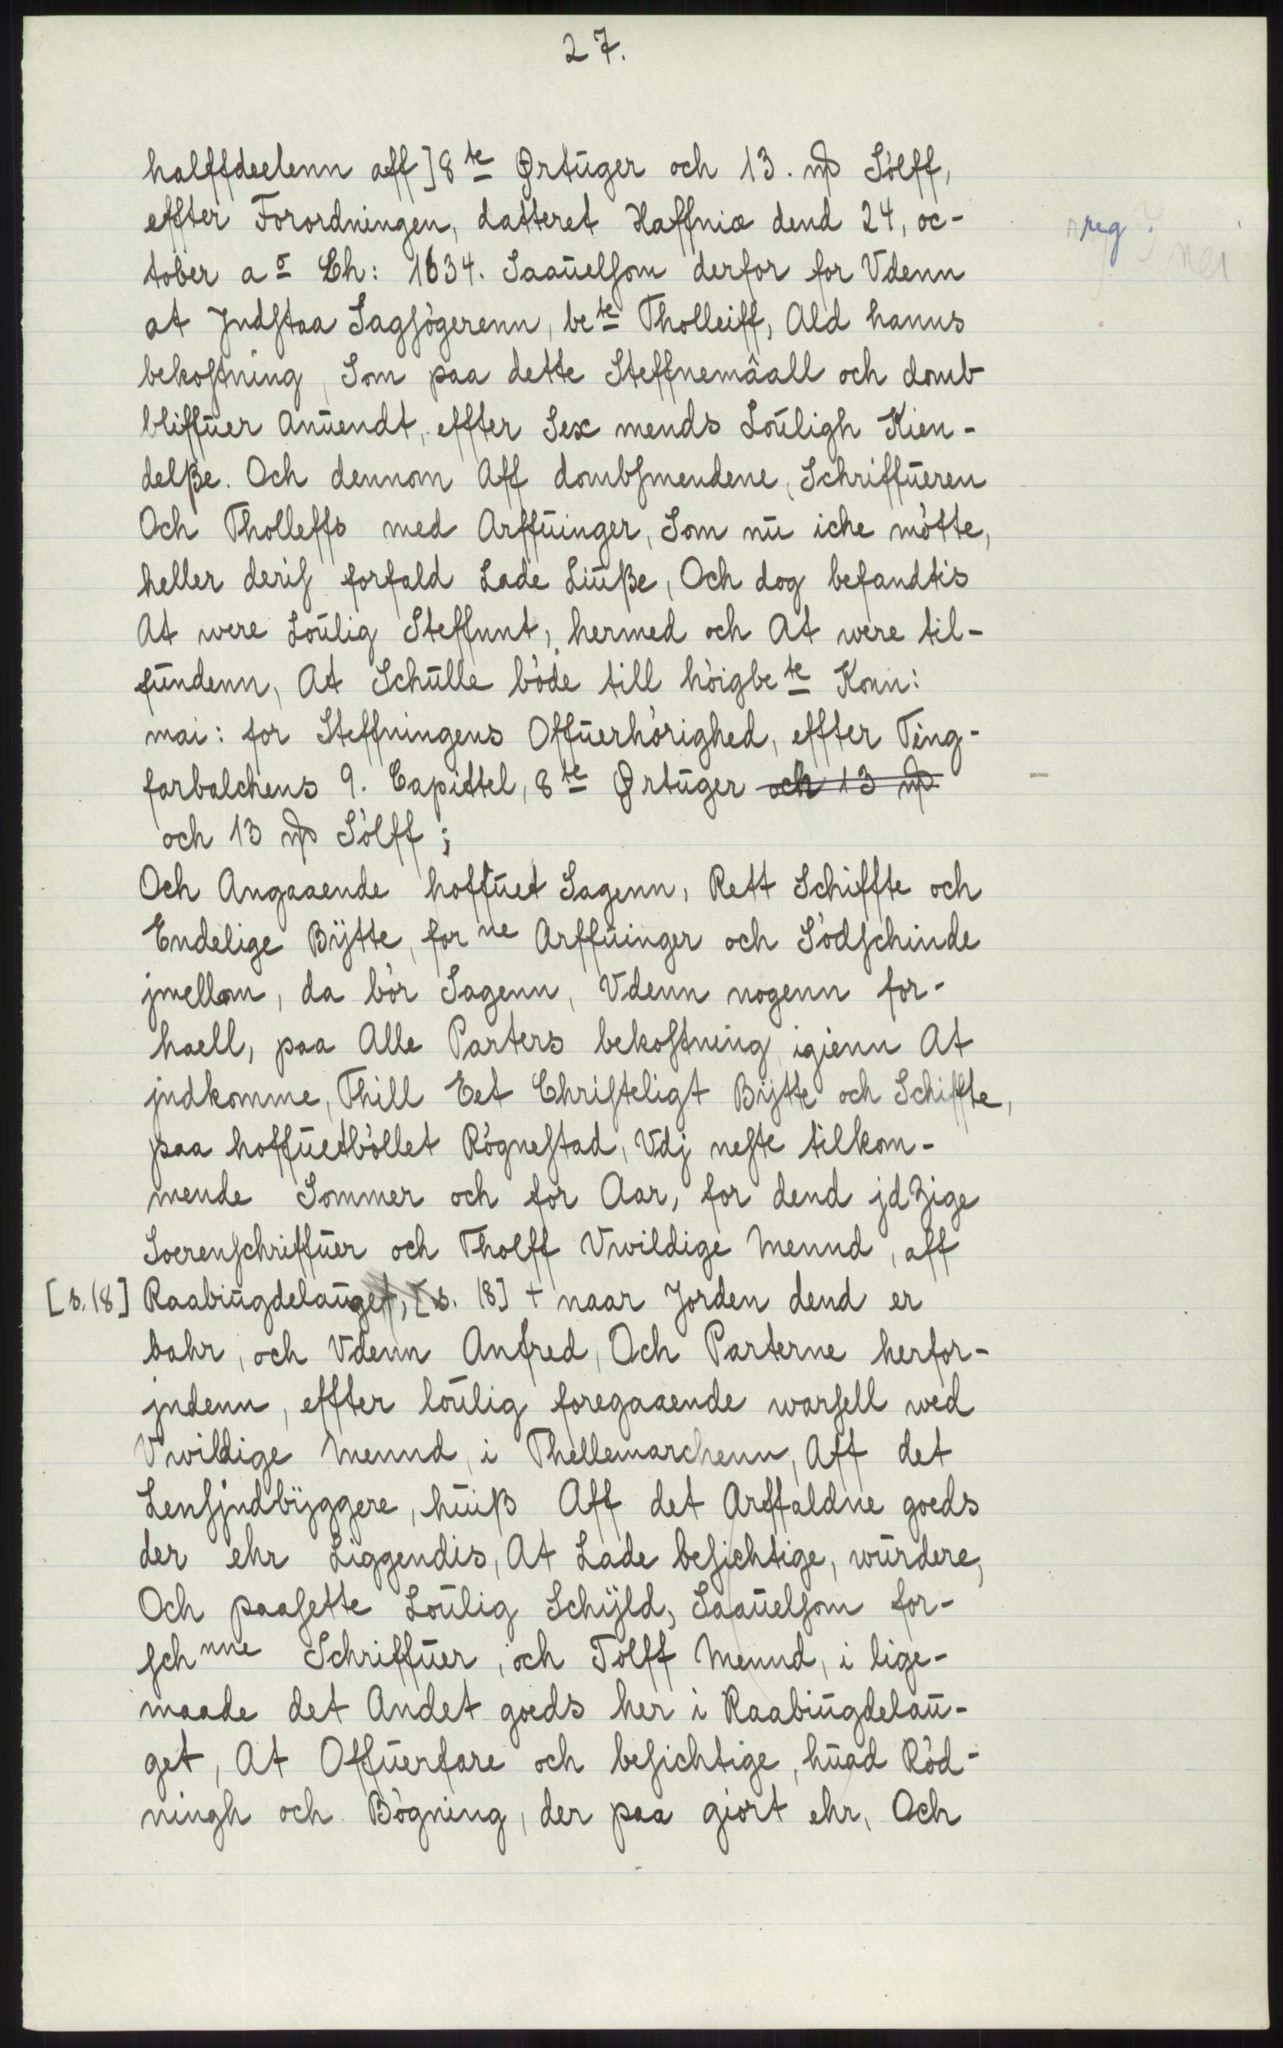 27.
halffdeelenn aff] 8te Ørtuger och 13. mþ Sölff,
effter Forordningen, datteret Haffniæ dend 24, oc-
tober aō Ch: 1634. Saauelsom derfor for Vdenn
at Jndstaa Sagsögerenn, bete Tholleiff, Ald hanns
bekostning, Som paa dette Steffnemâall och domb
bliffuer anuendt, effter Sex mends Louligh Kien-
delße. Och dennom Aff dombsmendene, Schriffueren
Och Tholleffs med Arffuinger, Som nu iche mötte,
heller deris forfald Lade Liuße, Och dog befandtis
At were Loulig Steffnnt, hermed och At were til-
fundenn, At Schulle böde till höigbete Konn:
mai: for Steffningens Offuerhörighed, effter Ting-
farbalchens 9. Capittel, 8te Ørtuger och 13 mþ
och 13 mþ Sölff;
Och Angaaende hoffuet Sagenn, Rett Schiffte och
Endelige Bÿtte, for ne Arffuinger och Södschinde
jmellom, da bör Sagenn, Vdenn nogenn for-
haell, paa Alle Parters bekostning igienn At
jndkomme, Thill Eet Christeligt Bÿtte och Schiffte,
paa hoffuetböllet Rögnestad, Vdj neste tilkom-
mende Sommer och for Aar, for dend jdZige
Soerenschriffuer och Tholff Vwildige Mennd, aff
[s. 18] Raabiugdelauget, [s. 18] + naar Jorden dend er
bahr, och Vdenn Anfred, Och Parterne herfor-
jndenn, effter loulig foregaaende warsell wed
Vwildige Mennd, i Thellemarchenn, Aff det
Lensjndbÿggere, huiß Aff det Arffaldne goeds
der ehr Liggendis, At Lade besichtige, wurdere,
Och paasette Loulig Schÿld, Saauelsom for-
sch nne Schriffuer, och Tolff Mennd, i lige-
maade det Andet goeds her i Raabiugdelau-
get, At Offuerfare och besichtige, huad Röd-
ningh och Bögning, der paa giort ehr, Och
reg. ? nei